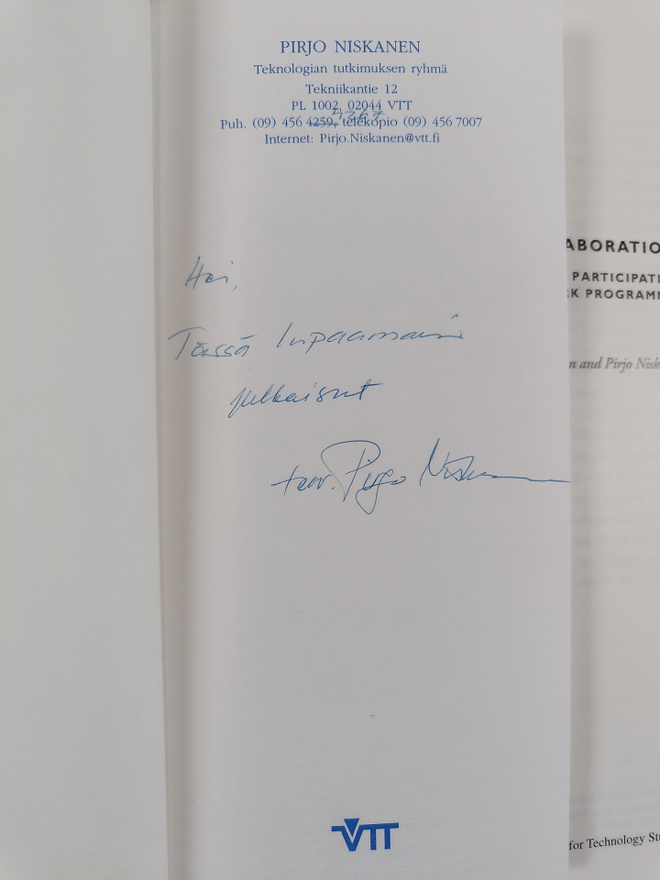 PIRJO NISKANEN
Teknologian tutkimuksen ryhmä
Tekniikantie 12
PL 1002, 02044 VTT
Puh. (09) 456 4259, telekopio (09) 456 7007
Internet: Pirjo.Niskanen@vtt.fi
Hei,
Tässä lupaamani
julkaisut
terv. Pirjo Niskanen
VTT
ABORATIO
PARTICIPATI
K PROGRAMM
n and Pirjo Nisk
for Technology Stu